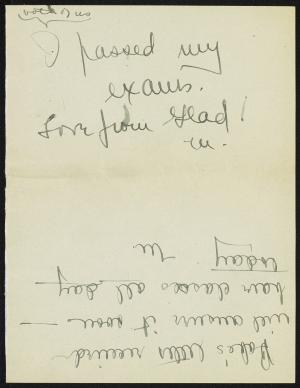 I passed my
exams.
Love from Glad!
m.
letter received -
will answer it soon -
have classes all day -
today
M.